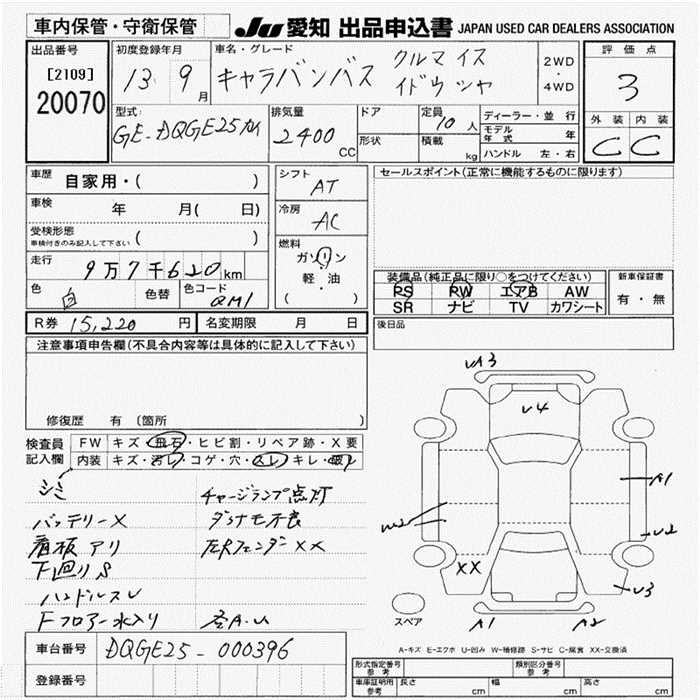 車内保管・守衛保管
JU 愛知 出品申込書 JAPAN USED CAR DEALERS ASSOCIATION
出品番号
[2109]
20070
初度登録年月
13 9 月
車名・グレード
キャラバンバス
クルマイス
イドウシャ
2WD
・
4WD
評価点
3
外装 内装
C C
型式:
GE-DQGE25カイ
排気量
2400 CC
ドア
形状
定員
10 人
積載
kg
ディーラー・並 行
モデル年式 年
ハンドル 左・右
車歴 自家用・( )
車検 年 月( 日)
受検形態
車検付きのみ記入して下さい ( )
走行 9万7千620 km
色 白 色替 色コード QM1
シフト AT
冷房 AC
燃料
ガソリン
・
軽・油
( )
セールスポイント(正常に機能するものに限ります)
装備品(純正品に限り○をつけてください)
PS PW エアB AW
SR ナビ TV カワシート
新車保証書
有・無
R券 15,220 円 名変期限 月 日
後日品
注意事項申告欄(不具合内容等は具体的に記入して下さい)
修復歴 有 〔箇所 〕
検査員記入欄
FW キズ・飛石・ヒビ割・リペア跡・X要
内装 キズ・汚レ・コゲ・穴・スレ・キレ・破レ
シミ
チャージランプ点灯
バッテリーX
ダイナモ不良
看板アリ
左Rフェンダーxx
下回りS
ハンドルスレ
Fフロアー水入り
A.U
U4
A1
W2
U2
XX
U3
A1
A2
スペア
A-キズ E-エクボ U-凹み W-補修跡 S-サビ C-腐食 XX-交換済
車台番号 DQGE25-000396
登録番号
形式指定番号 参考
類別区分番号 参考
車庫証明用 参考 長さ cm 幅 cm 高さ cm